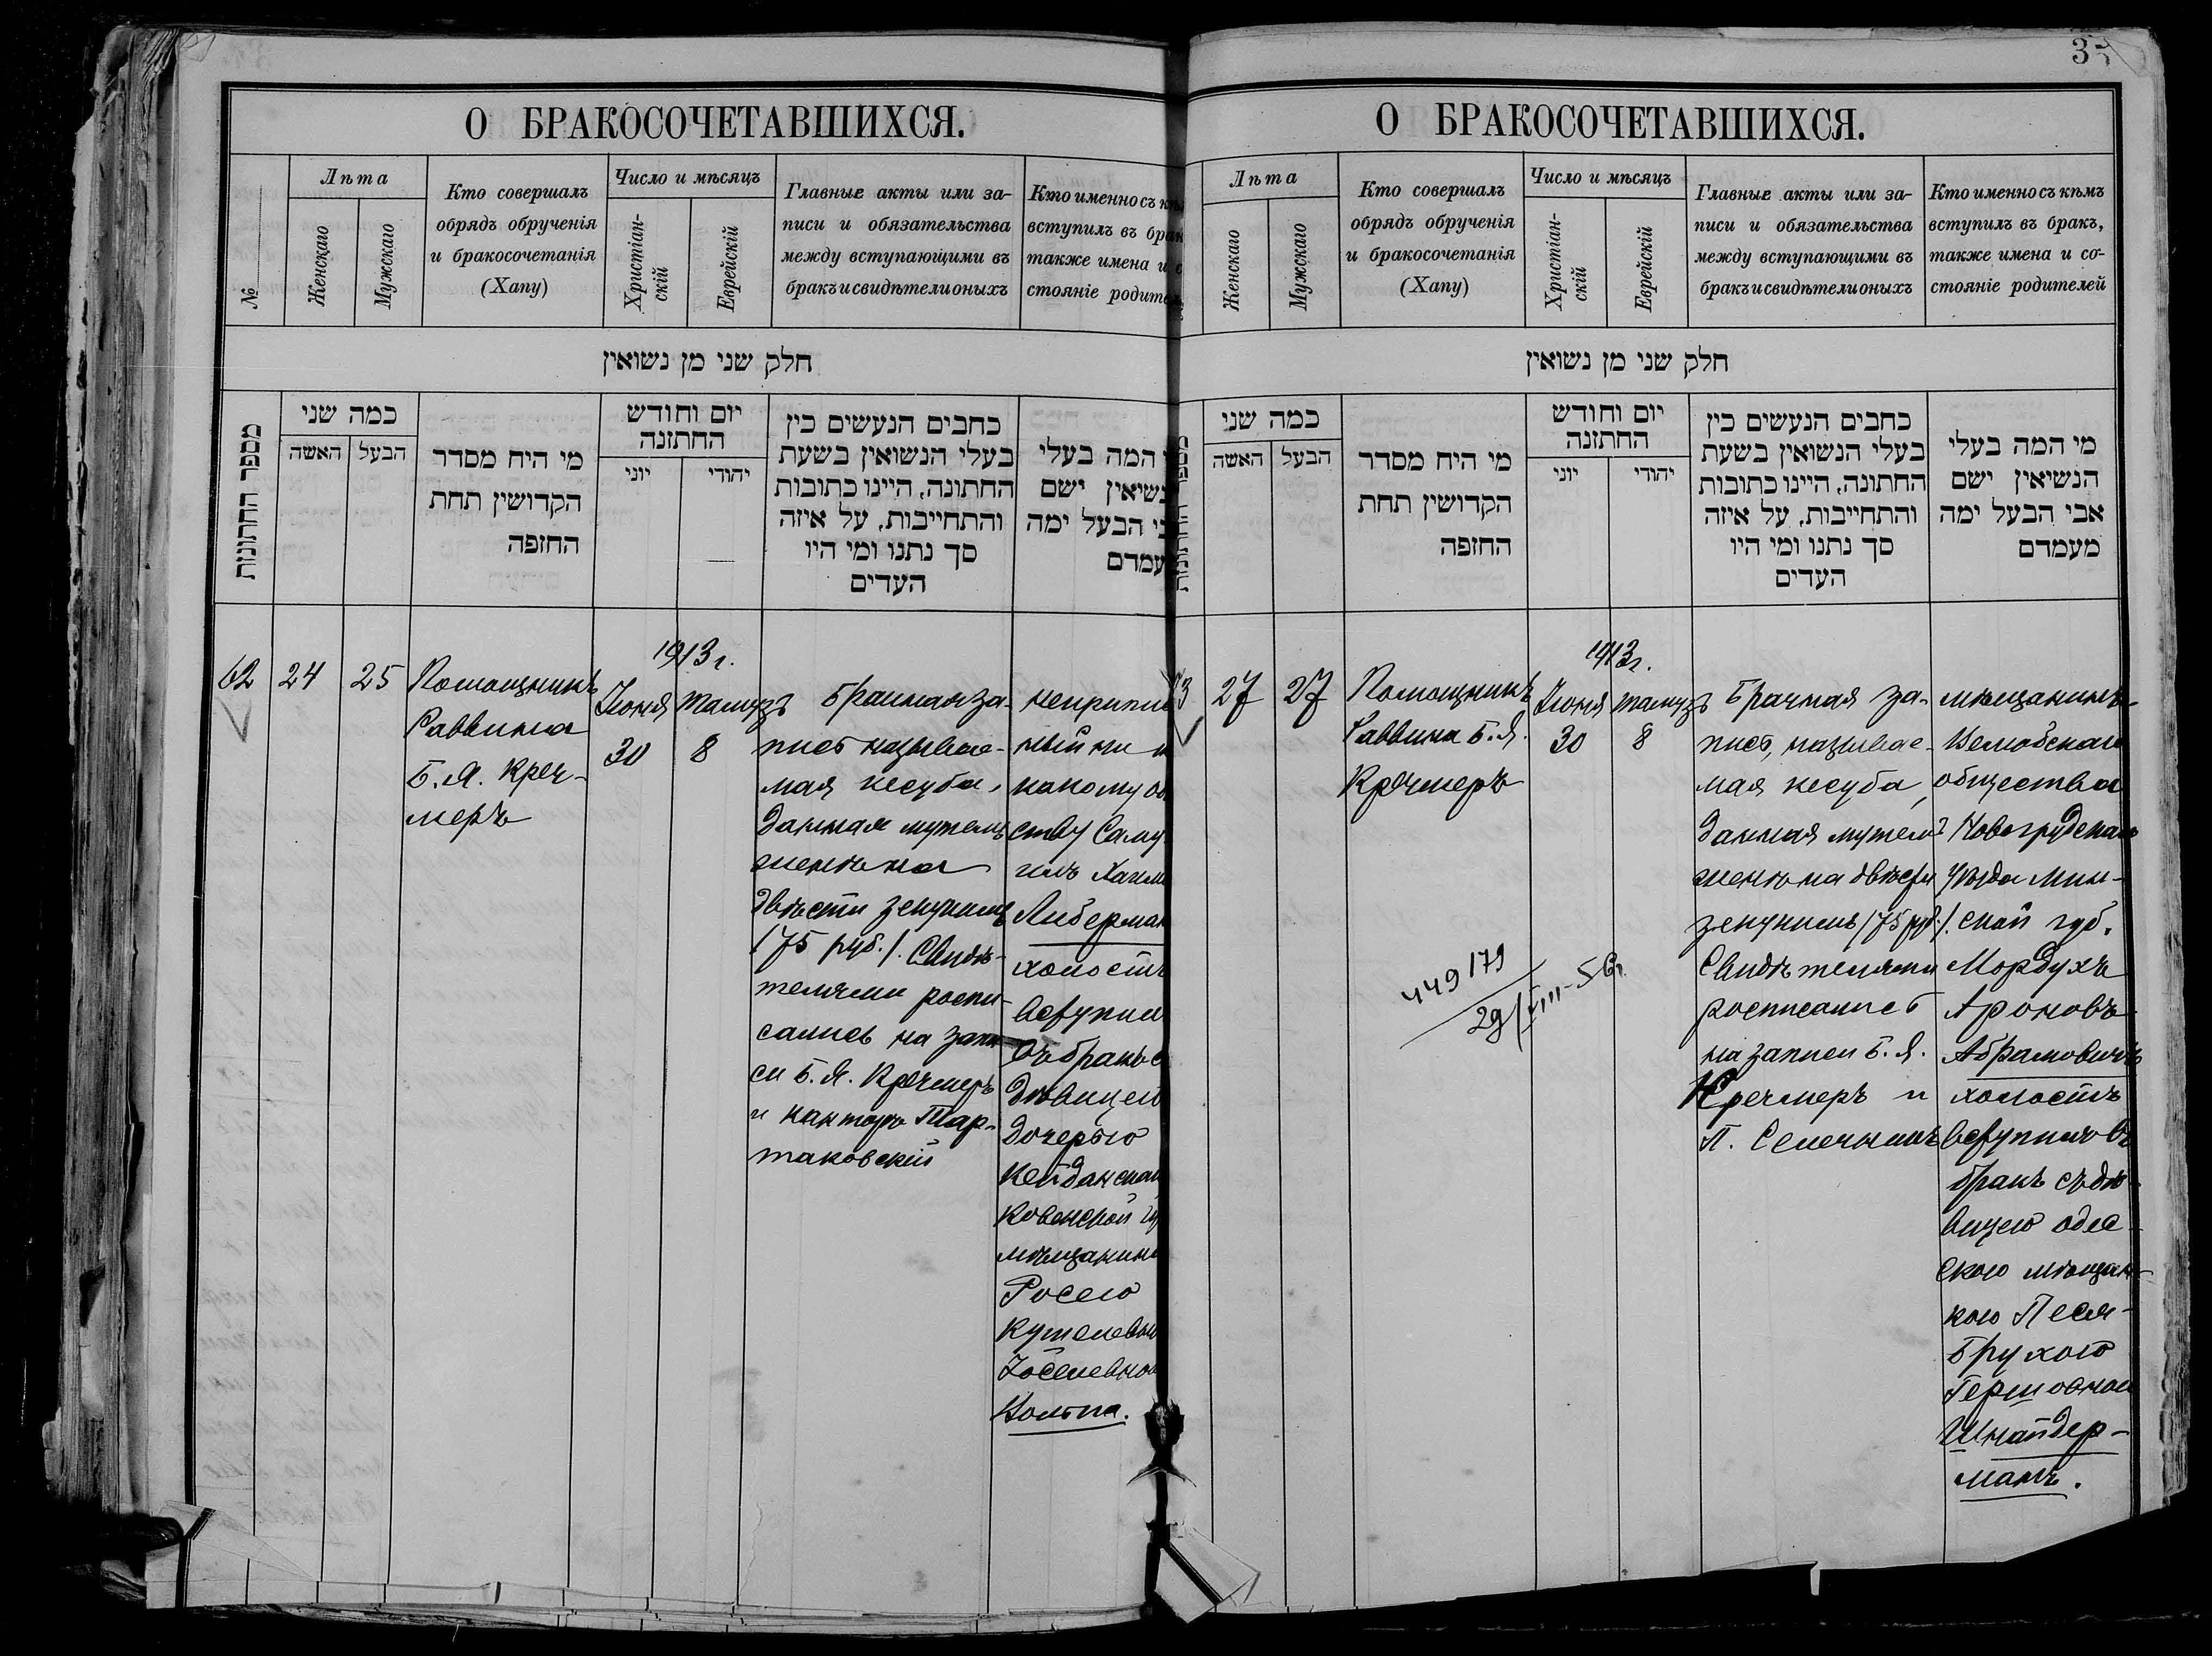 О БРАКОСОЧЕТАВШИХСЯ.
№
Лѣта
Женскаго
Мужскаго
Кто совершалъ
обрядъ обрученія
и бракосочетанія
(Хапу)
Число и мѣсяцъ
Христіан-
скій
Еврейскій
Главные акты или за-
писи и обязательства
между вступающими въ
бракъ и свидѣтели оныхъ
Кто именно съ
вступилъ въ
также имена и
стояніе
חלק שני מן נשואין
מספר החתונות
כמה שני
האשה
הבעל
מי היח מסדר
הקדושין תחת
החופה
יום וחודש
החתונה
יוני
יהודי
כחבים הנעשים כין
בעלי הנשואין בשעת
החתונה, היינו כתובות
והתחייבות, על איזה
סך נתנו ומי היו
העדים
המה בעלי
ישם
הבעל ימה
62
24
25
Помощникъ
Раввина
Б. Я. Креч-
меръ
1913 г.
Іюня
30
Тамузъ
8
Брачная за-
пись называе-
мая кесуба,
данная мужемъ
женѣ на
двѣсти зекукимъ
/75 руб./. Свидѣ-
телями распи-
сались на запи-
си Б. Я. Кречмеръ
и канторъ Тар-
таковскій
ный ни
какому
ству
Либерман
холостъ
вступил
въ бракъ с
дѣвицей
дочерью
Кейданской
Ковенской
мѣщанина
Росею
Іоселевной
3
О БРАКОСОЧЕТАВШИХСЯ.
Лѣта
Женскаго
Мужскаго
Кто совершалъ
обрядъ обрученія
и бракосочетанія
(Хапу)
Число и мѣсяцъ
Христіан-
скій
Еврейскій
Главные акты или за-
писи и обязательства
между вступающими въ
бракъ и свидѣтели оныхъ
Кто именно съ кѣмъ
вступилъ въ бракъ,
также имена и со-
стояніе родителей
חלק שני מן נשואין
כמה שני
האשה
הבעל
מי היח מסדר
הקדושין תחת
החופה
יום וחודש
החתונה
יוני
יהודי
כחבים הנעשים כין
בעלי הנשואין בשעת
החתונה, היינו כתובות
והתחייבות, על איזה
סך נתנו ומי היו
העדים
מי המה בעלי
הנשיאין ישם
אבי הבעל ימה
מעמדם
3
27
27
Помощникъ
Раввина Б. Я.
Кречмеръ
1913 г.
Іюня
30
Тамузъ
8
449179
29/VIII-56г.
Брачная за-
пись, называе-
мая кесуба,
данная мужемъ
женѣ на двѣсти
зекукимъ /75 руб./.
Свидѣтелями
росписались
на записи Б. Я.
Кречмеръ и
мѣщанинъ
общества
Новогрудскаго
уѣзда Мин-
ской губ.
Мордухъ
Ароновъ
Абрамовичъ
холостъ
вступилъ въ
бракъ съ дѣ-
вицею одес-
скою мѣщан-
кою Песя-
Брухою
Гершовной
Шнайдер-
манъ.